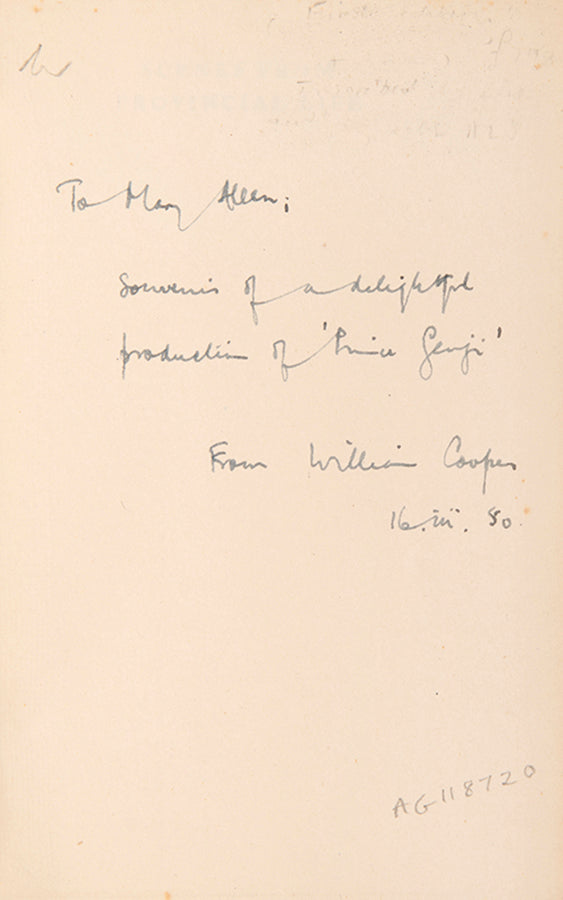 To Mary Allen;
Souvenir of a delightful
production of 'Prince Genji'
From William Cooper
16.iii.50.
AG118720